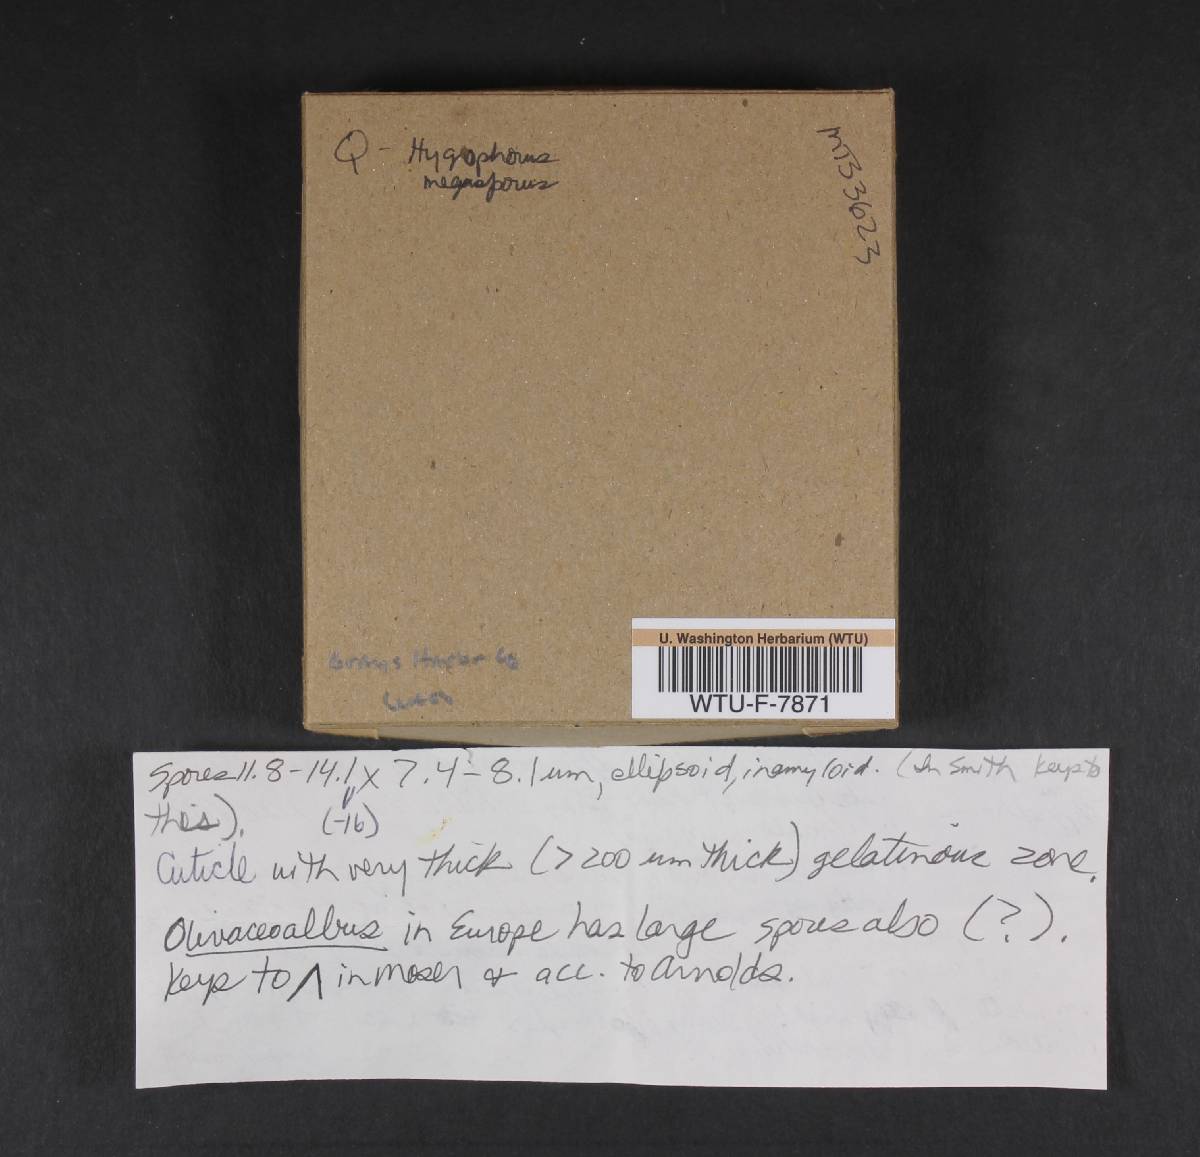 Q - Hygrophorus
megasporus
MTS3623
Grays Harbor Co
U. Washington Herbarium (WTU)
WTU-F-7871
Spores 11.8-14.1 x 7.4-8.1 um, ellipsoid, inamyloid. (In Smith keys to
this).
(-16)
Cuticle with very thick (>200 um thick) gelatinous zone.
Olivaceoalbus in Europe has large spores also (?).
Keys to ^ in Moser & acc. to Arnolds.